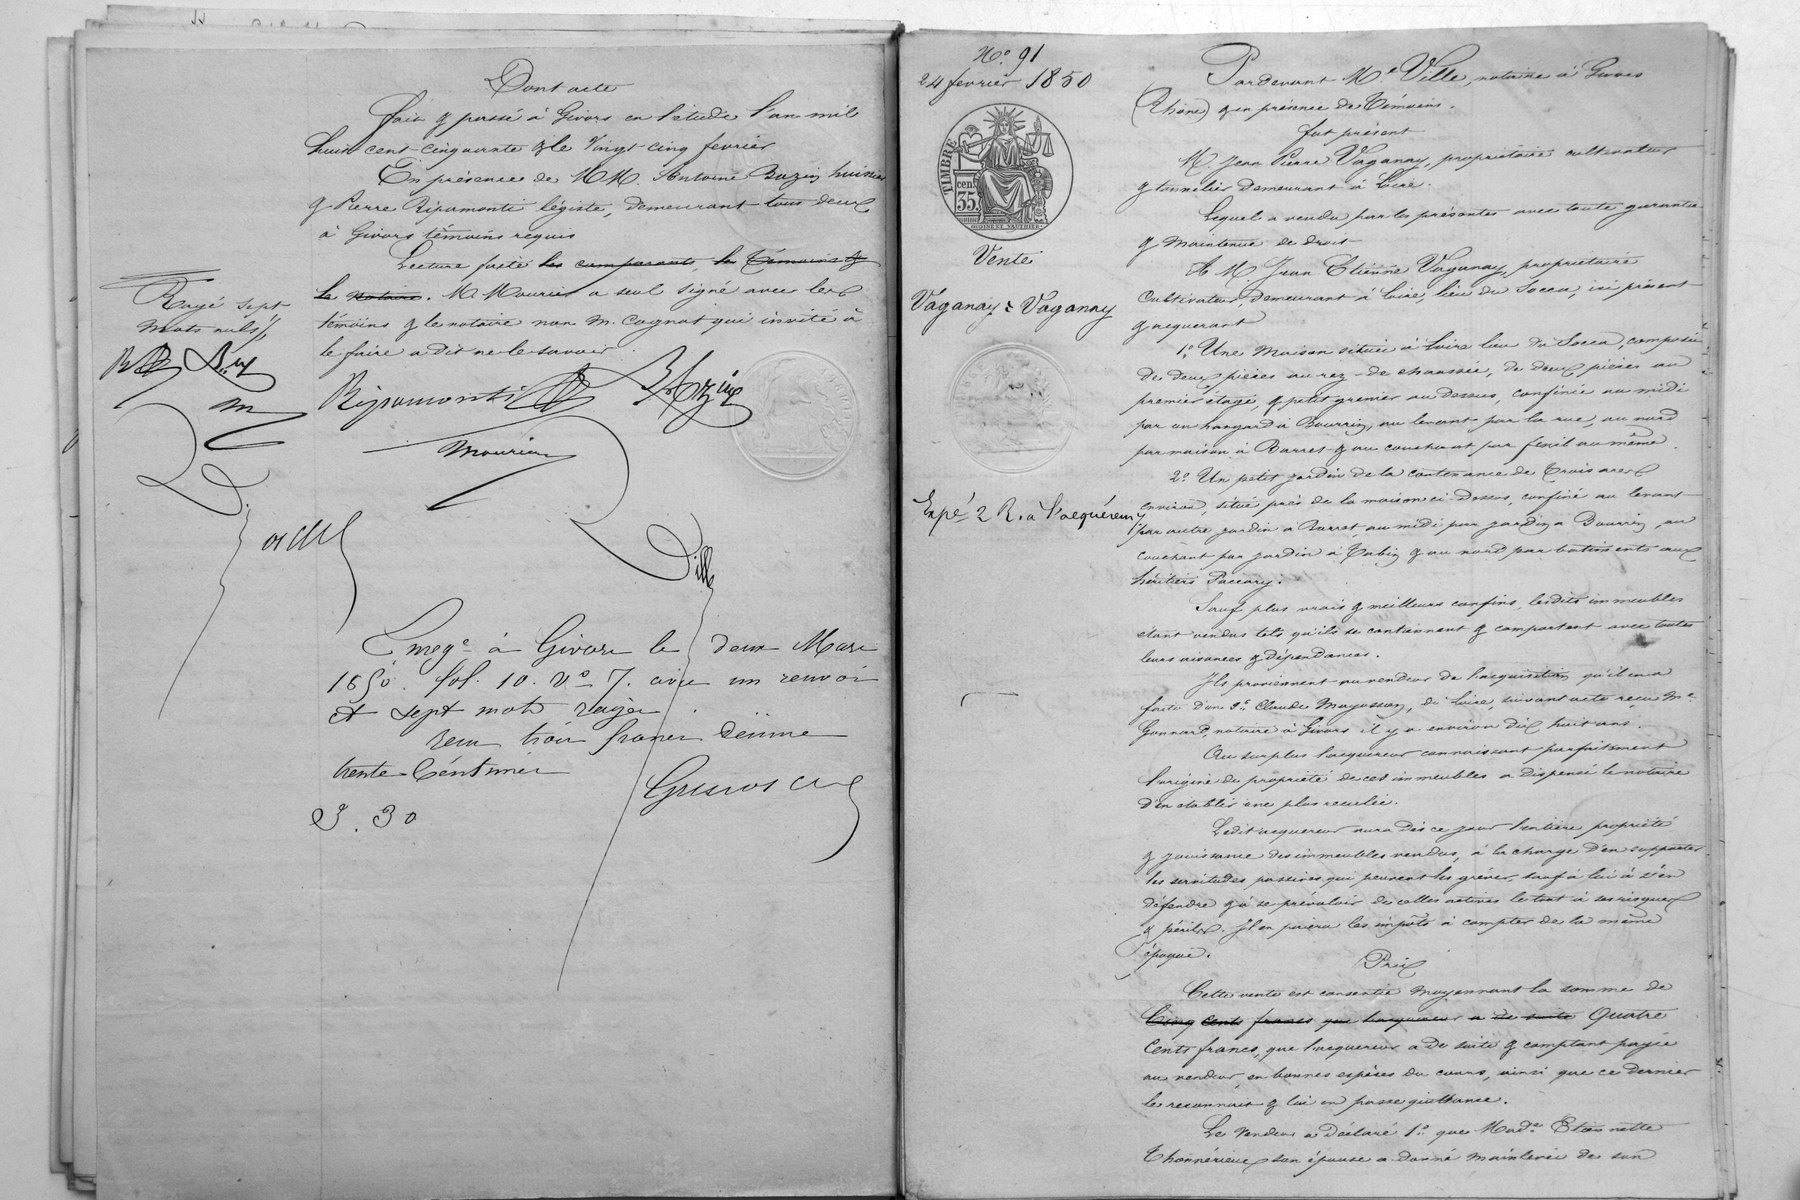 Dont acte
fait & passé à Givors en l'étude l'an mil
huit cent cinquante & le vingt cinq fevrier
En présence de MM. Antoine Bazin huissier
& Pierre Ripamonti légiste, demeurant tous deux
à Givors témoins requis
Lecture faite les comparants, les témoins &
le notaire. M Mourier a seul signé avec les
témoins & le notaire non M. Cognat qui invité à
le faire a dit ne le savoir
Rayé sept
mots nuls
Ripamonti
Bazin
Mourier
Ville
Enregé à Givors le deux Mars
1850. fol. 10. Vo 7. avec un renvoi
et sept mots rayés
reçu trois francs décime
trente centimes
3.30
No 91
24 fevrier 1850
TIMBRE
35
cen.
OUDINE ET VAUTHIER
Vente
Vaganay = Vaganay
Expé 2 R. a l'acquéreur
Pardevant Me Ville, notaire à Givors
(Rhône) & en présence de témoins.
fut présent
M. Jean Pierre Vaganay, propriétaire cultivateur
& tonnelier demeurant à Loire.
Lequel a vendu par les présentes avec toute garantie
& maintenue de droit
A M Jean Etienne Vaganay, propriétaire
cultivateur, demeurant à Loire, lieu du Socca, ici présent
& acquerant
1o Une maison située à Loire lieu du Socca, composée
de deux pièces au rez-de chaussée, de deux pièces au
premier étage, & petit grenier au dessus, confinée au midi
par un hangard à Bourrin, au levant par la rue, au nord
par maison à Barret & au couchant par fenil au même.
2o Un petit jardin de la contenance de trois ares
environ, situé près de la maison ci-dessus, confiné au levant
par autre jardin a Barret, au midi par jardin a Bourrin, au
couchant par jardin à Robin & au nord par batiments aux
héritiers Paccary.
Sauf plus vrais & meilleurs confins, lesdits immeubles
étant vendus tels qu'ils se contiennent & comportent avec toutes
leurs aisances & dépendances.
Ils proviennent au vendeur de l'acquisition qu'il en a
faite d'un Sr Claude Mazuson, de Loire, suivant acte reçu Me
Gonnard, notaire à Givors il y a environ dix huit ans.
Au surplus l'acquereur connaissant parfaitement
l'origine de propriété de ces immeubles a dispensé le notaire
d'en établir une plus reculée.
Ledit acquereur aura dès ce jour l'entière propriété
& jouissance des immeubles vendus, à la charge d'en supporter
les servitudes passives qui peuvent les grever, sauf à lui à s'en
défendre & à se prévaloir de celles actives le tout à ses risques
& périls. Il en paiera les impôts à compter de la même
époque.
Prix
Cette vente est consentie moyennant la somme de
Cinq cents francs que l'acquereur a de suite Quatre
cents francs, que l'acquereur a de suite & comptant payée
au vendeur, en bonnes espèces du cours, ainsi que ce dernier
le reconnait & lui en passe quittance.
Le vendeur a déclaré 1o que Made Etiennette
Thonnérieux son épouse a donné mainlevée de son